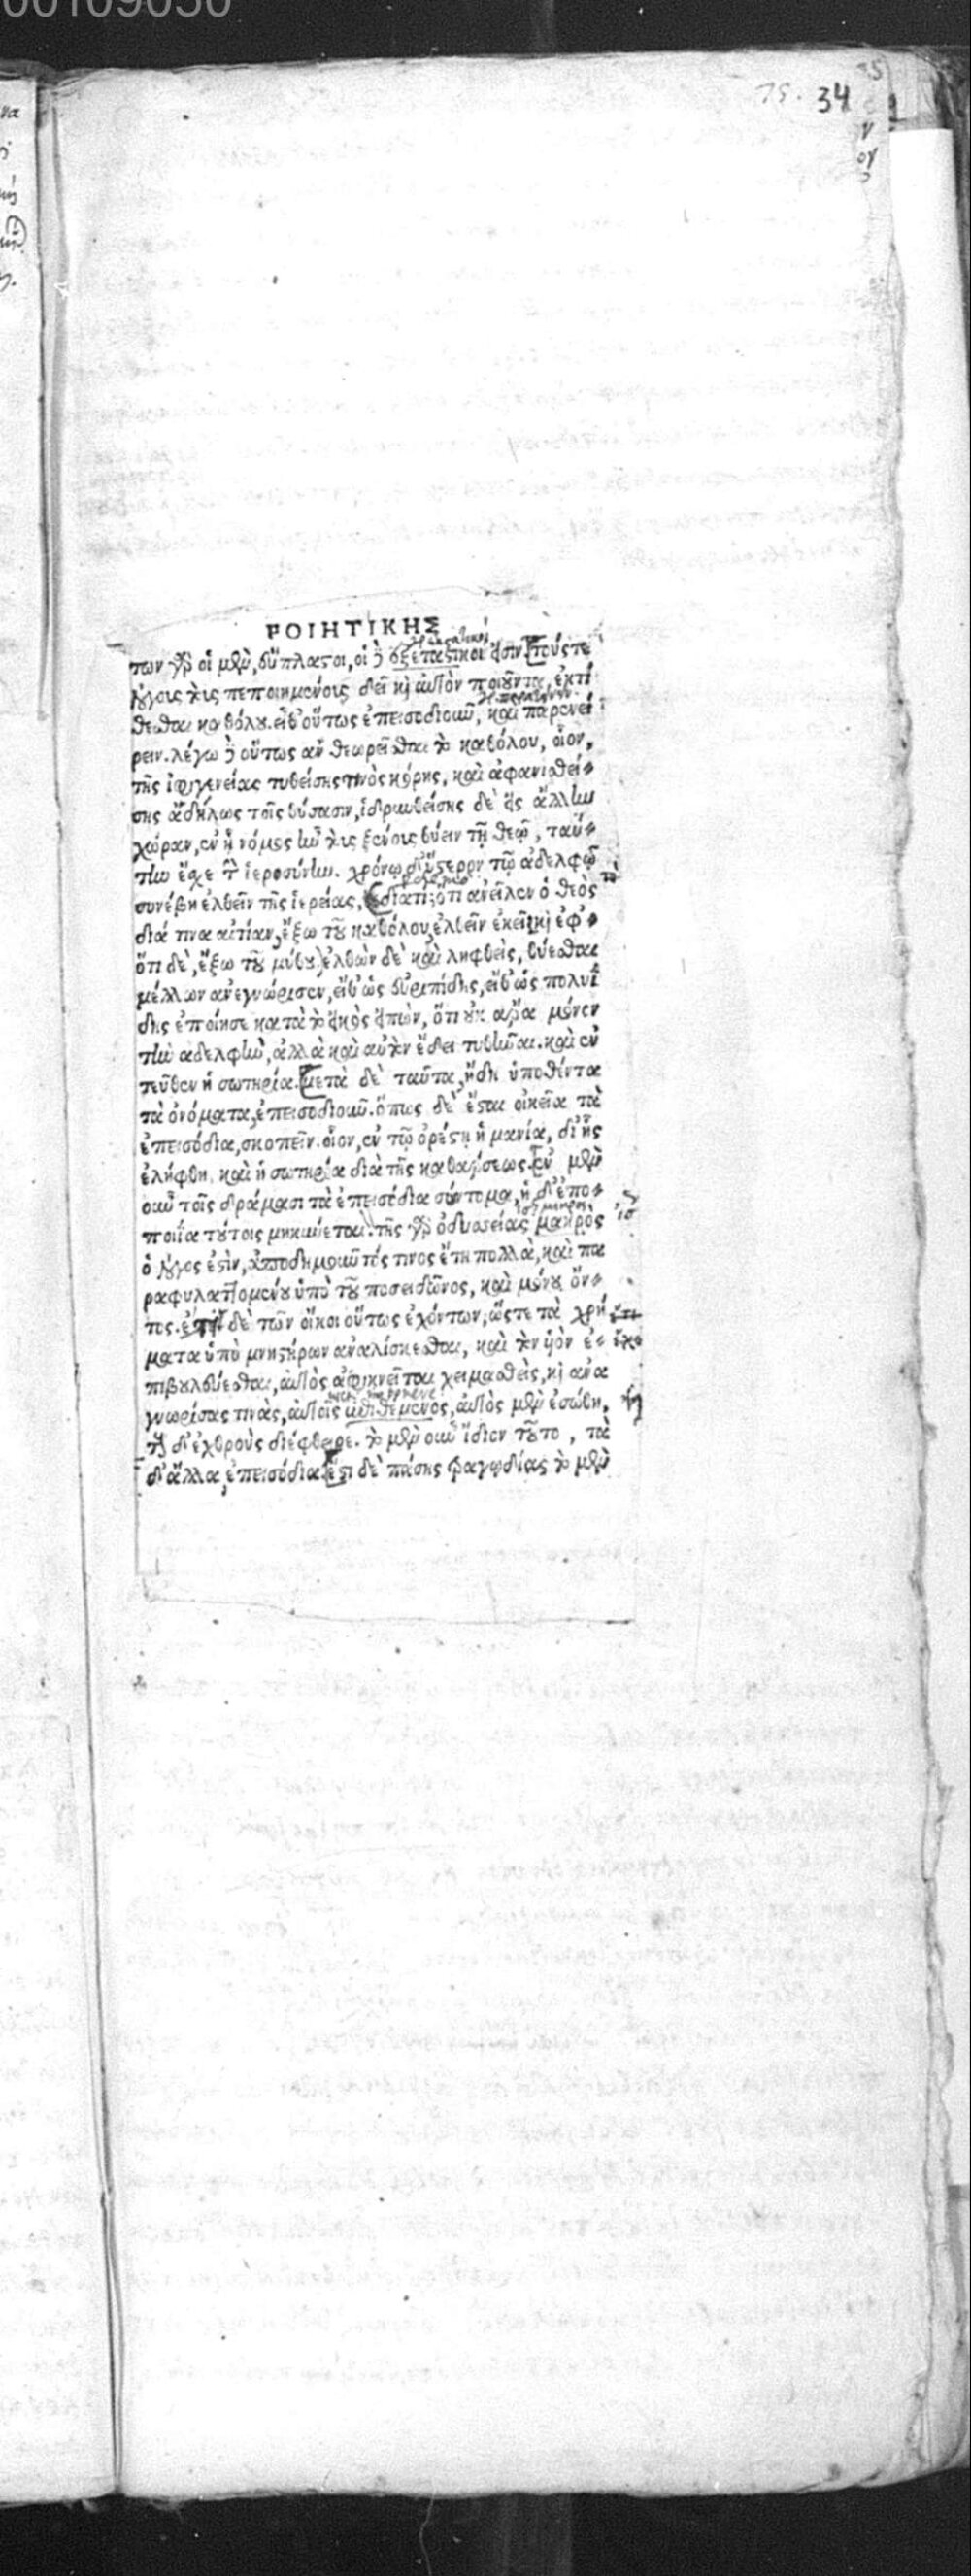 00109050
75. 34
ΠΟΙΗΤΙΚΗΣ
των γὰρ οἱ μὲν, εὔπλαστοι, οἱ δὲ ἐξεταστικοί εἰσιν. τούς τε
λόγοις τοῖς πεποιημένοις δεῖ καὶ αὐτὸν ποιοῦντα, ἐκτί
θεσθαι καθόλου. εἶθ' οὕτως ἐπεισοδιοῦν, καὶ παρενεί
ρειν. λέγω δὲ οὕτως ἂν θεωρεῖσθαι τὸ καθόλου, οἷον,
τῆς ἰφιγενείας τυθείσης τινὸς κόρης, καὶ ἀφανισθεί-
σης ἀδήλως τοῖς θύσασιν, ἱδρυνθείσης δὲ εἰς ἄλλην
χώραν, ἐν ᾗ νόμος ἦν τοῖς ξένοις θύειν τῇ θεῷ, ταύ-
την ἔσχε τὴν ἱερωσύνην. χρόνῳ δ' ὕστερον τῷ ἀδελφῷ
συνέβη ἐλθεῖν τῆς ἱερείας, διατί; ὅτι ἀνεῖλεν ὁ θεὸς
διά τινα αἰτίαν, ἔξω τοῦ καθόλου, ἐλθεῖν ἐκεῖ. καὶ ἐφ'
ὅτι δὲ, ἔξω τοῦ μύθου. ἐλθὼν δὲ καὶ ληφθεὶς, θύεσθαι
μέλλων ἀνεγνώρισεν, εἴθ' ὡς εὐριπίδης, εἴθ' ὡς πολυί
δης ἐποίησε κατὰ τὸ εἰκὸς εἰπὼν, ὅτι οὐκ ἄρα μόνον
τὴν ἀδελφὴν, ἀλλὰ καὶ αὐτὸν ἔδει τυθῆναι. καὶ ἐν
τεῦθεν ἡ σωτηρία. μετὰ δὲ ταῦτα, ἤδη ὑποθέντα
τὰ ὀνόματα, ἐπεισοδιοῦν. ὅπως δὲ ἔσται οἰκεῖα τὰ
ἐπεισόδια, σκοπεῖν. οἷον, ἐν τῷ ὀρέστῃ ἡ μανία, δι' ἧς
ἐλήφθη, καὶ ἡ σωτηρία διὰ τῆς καθάρσεως. ἐν μὲν
οὖν τοῖς δράμασι τὰ ἐπεισόδια σύντομα, ἡ δ' ἐπο-
ποιΐα τούτοις μηκύνεται. τῆς γὰρ ὀδυσσείας μακρὸς
ὁ λόγος ἐστὶν, ἀποδημοῦντός τινος ἔτη πολλὰ, καὶ πα
ραφυλαττομένου ὑπὸ τοῦ ποσειδῶνος, καὶ μόνου ὄν-
τος. ἐπεὶ δὲ τῶν οἴκοι οὕτως ἐχόντων, ὥστε τὰ χρή ἔτι
ματα ὑπὸ μνηστήρων ἀναλίσκεσθαι, καὶ τὸν υἱὸν ἐ-
πιβουλεύεσθαι, αὐτὸς ἀφικνεῖται χειμασθεὶς, καὶ ἀνα
γνωρίσας τινὰς, αὐτοῖς ἐπιθέμενος, αὐτὸς μὲν ἐσώθη,
τοὺς δ' ἐχθροὺς διέφθειρε. τὸ μὲν οὖν ἴδιον τοῦτο, τὰ
δ' ἄλλα, ἐπεισόδια. ἔστι δὲ πάσης τραγῳδίας τὸ μὲν